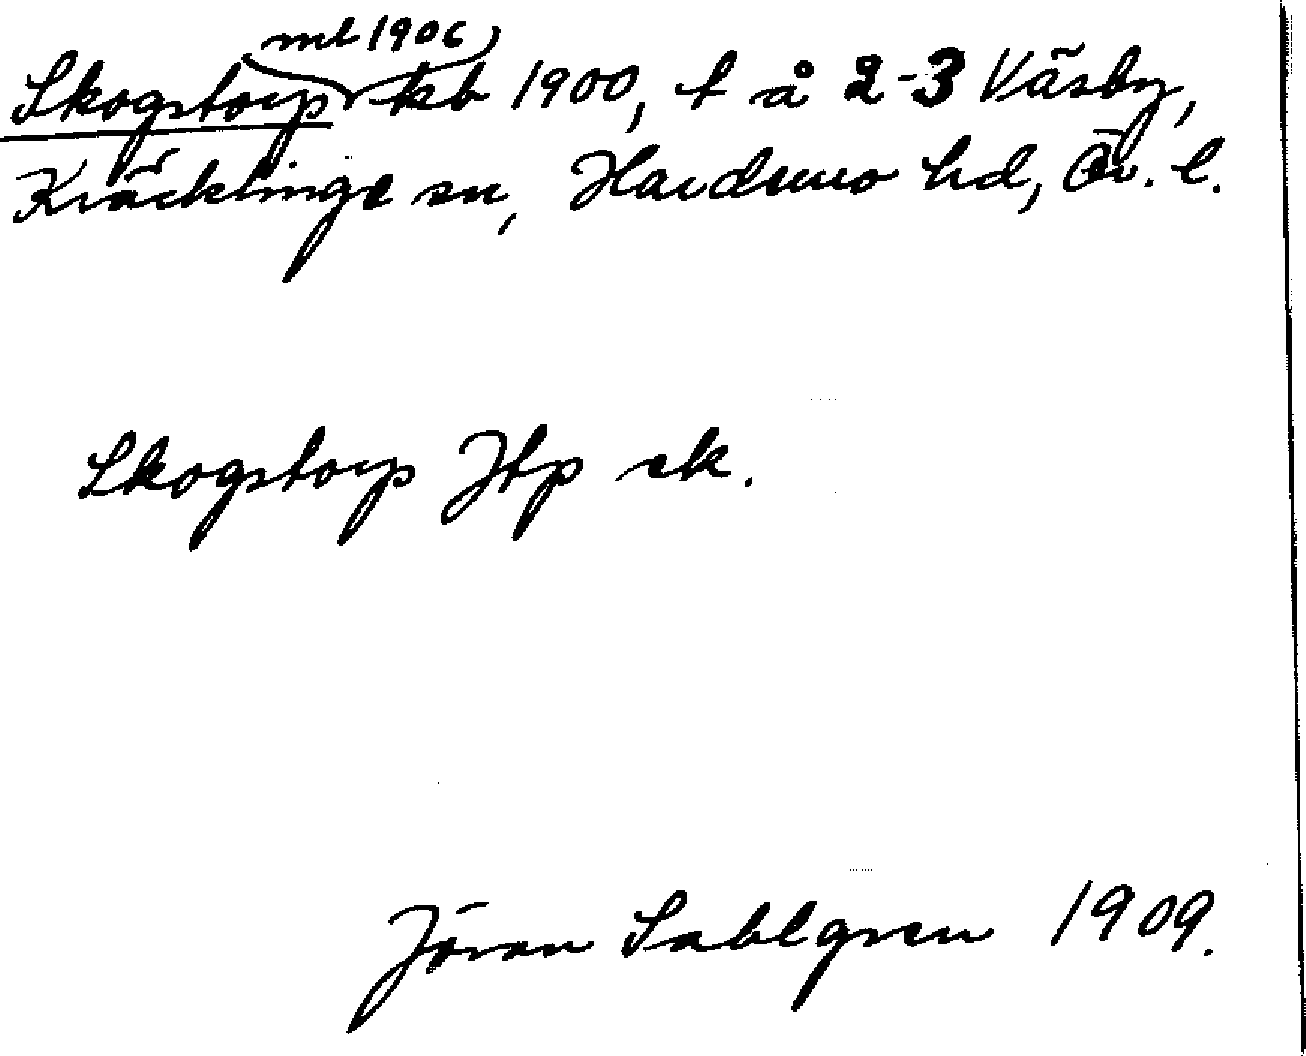 ml 1906
Skogstorp kb 1900, t å 2-3 Väsby,
Kräcklinge sn, Hardemo hd, Ör. l.
Skogstorp Jtp ek.
Jöran Sahlgren 1909.